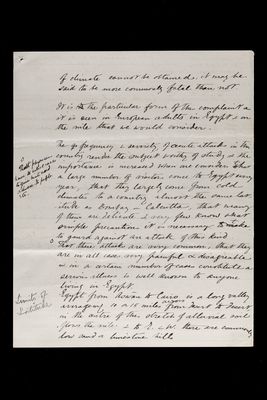 of climate cannot be obtained, it may be
said to be more commonly fatal than not.
It is the particular form of the complaint as
it is seen in European adults in Egypt
the rule that we would consider.
The frequency & severity of acute attacks in this
country render the subject worthy of study, & the
importance is increased when we consider that
a large number of visitors come to Egypt every
year, that they largely come from cold
climates to a country almost the same
as Bombay or Calcutta, that many
of them are delicate & very few know what
simple precautions it is necessary to make
to guard against an attack of this kind.
That these attacks are very common, that they
are in all cases very painful & disagreeable
& in a certain number of cases constitute a
serious illness is well known to anyone
living in Egypt.
Limits of
Latitude
Egypt from Assouan to Cairo is a long valley
averaging 10 to 15 miles from desert to desert
in the centre of this stretch of alluvial soil
flows the Nile, & to E. & W. there are commonly
low sand & limestone hills